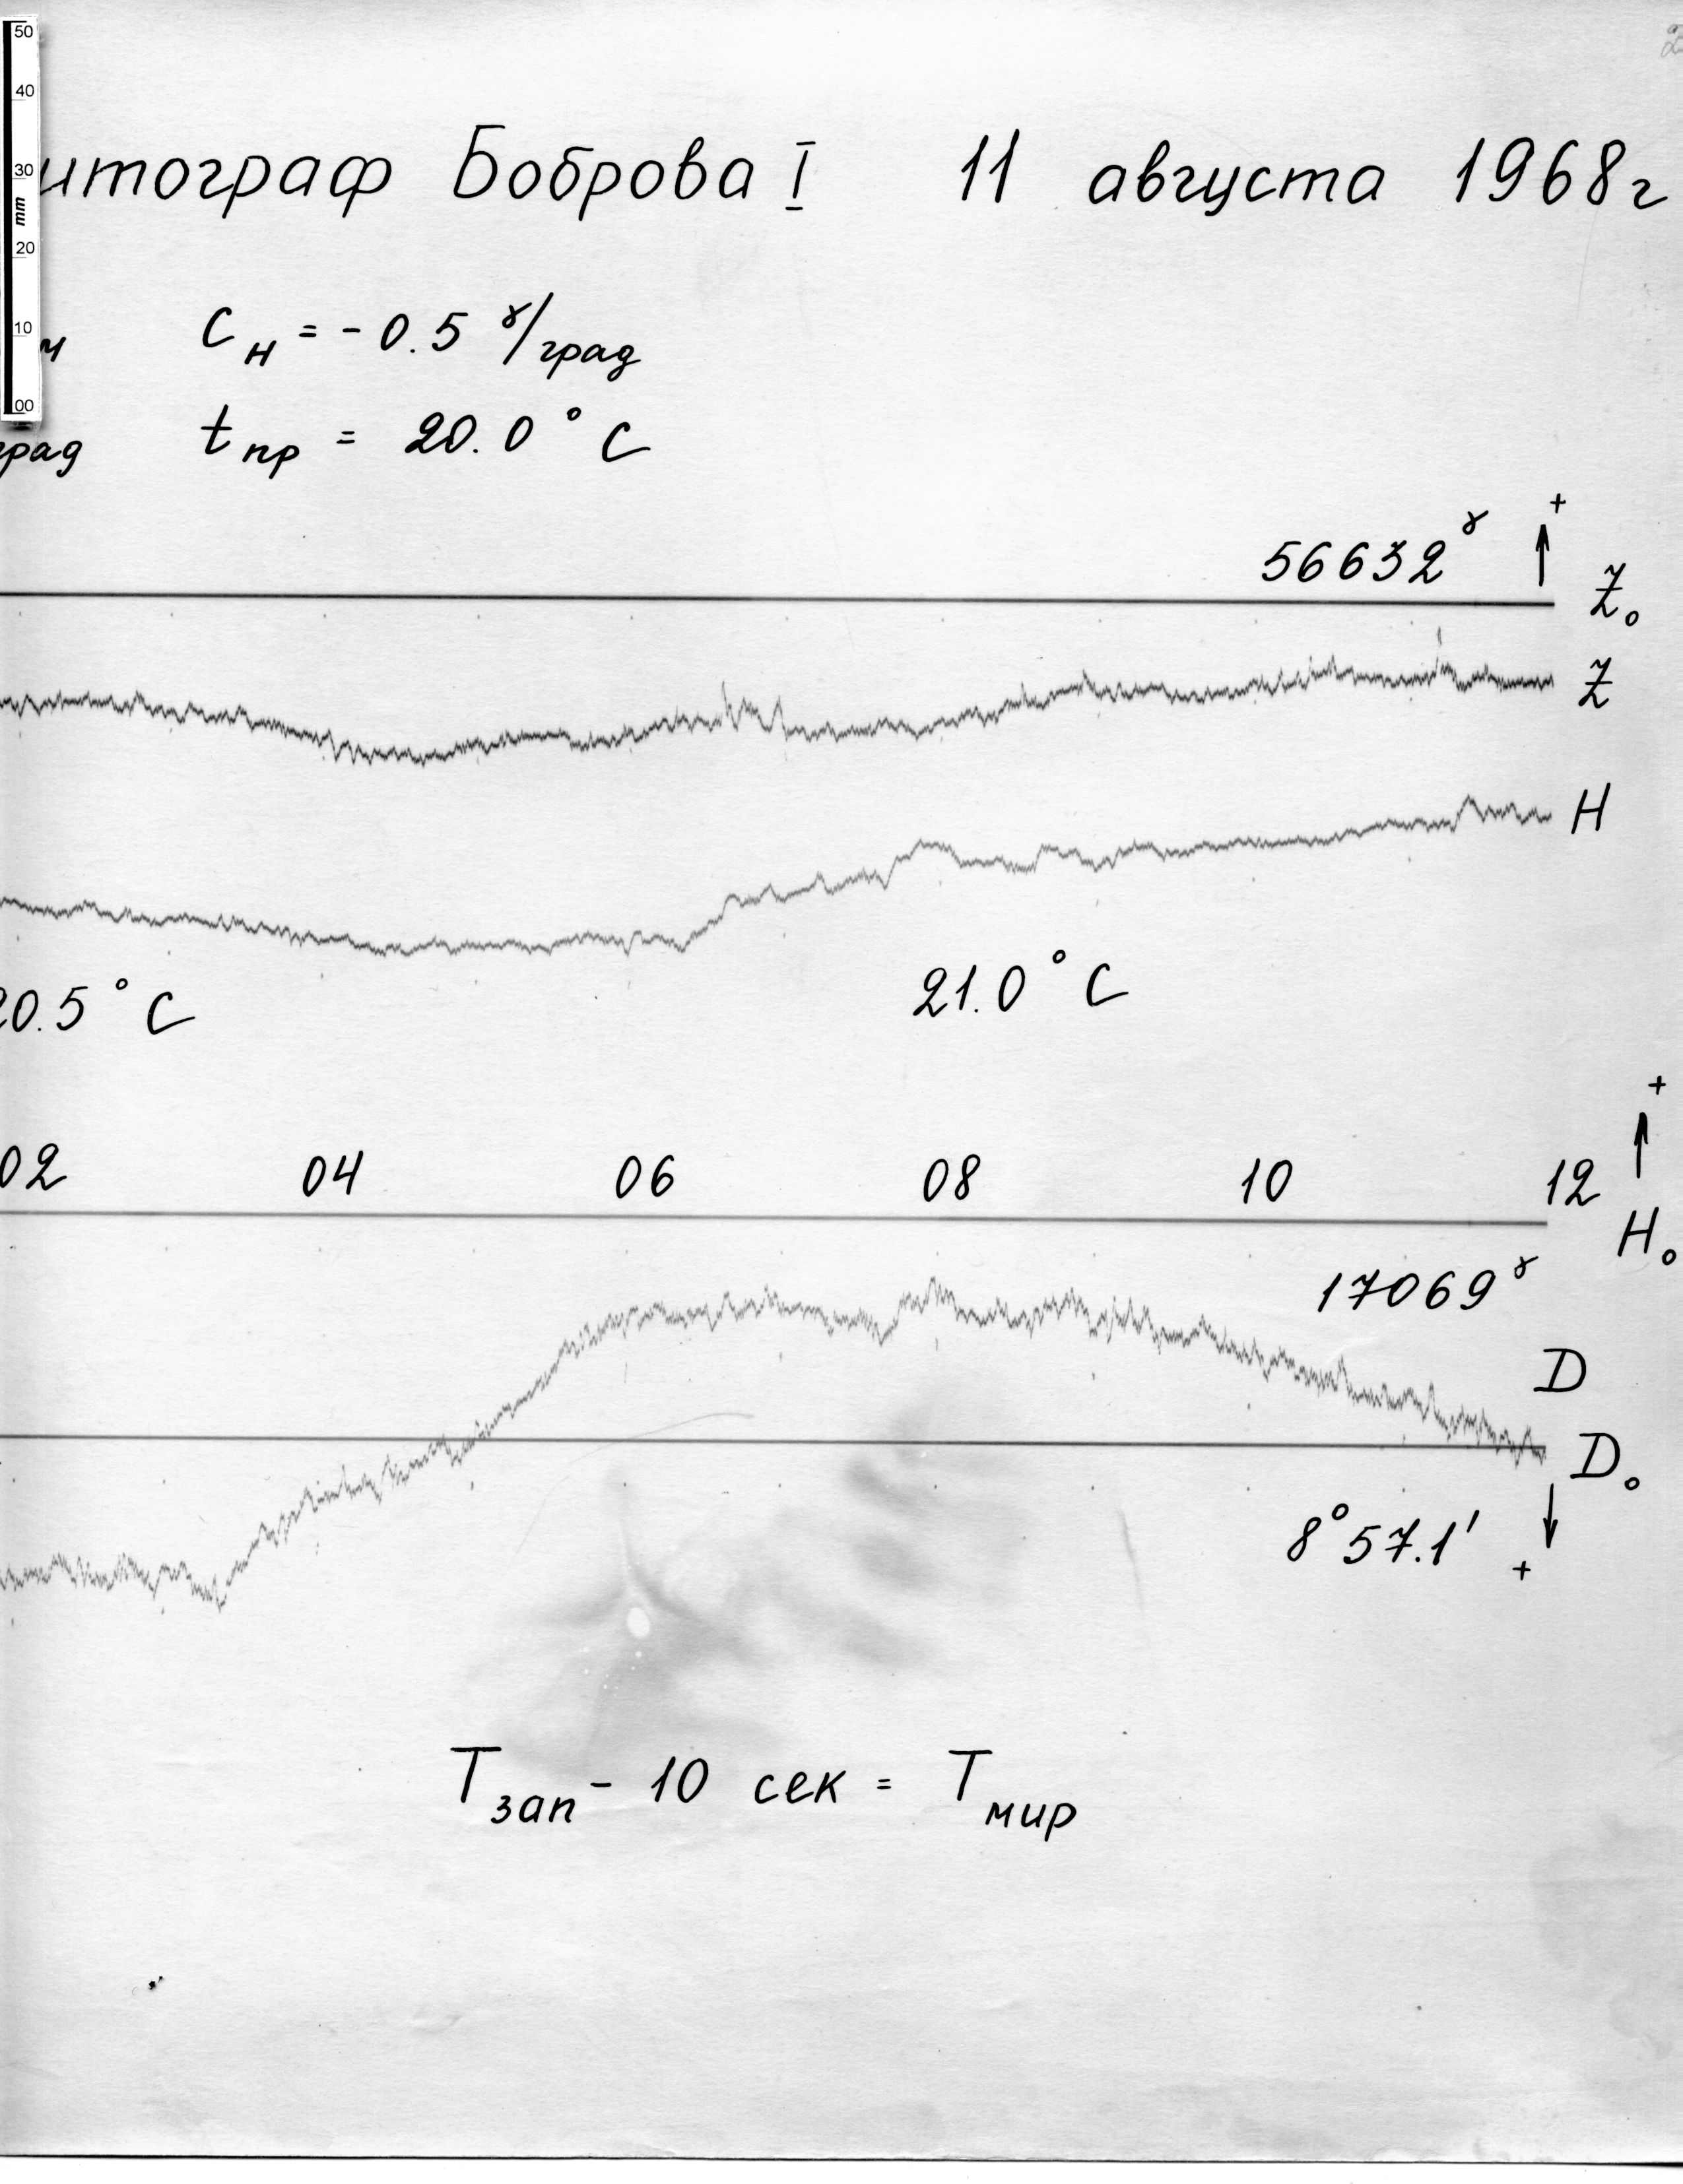 50
40
30
mm
20
10
00
итограф Боброва I 11 августа 1968г
м C н = - 0.5 γ/град
град t пр = 20.0° C
56632 γ + Z₀
Z
H
20.5° C 21.0° C
+
02 04 06 08 10 12
H₀
17069 γ
D
D₀
8° 57.1' +
T зап - 10 сек = T мир